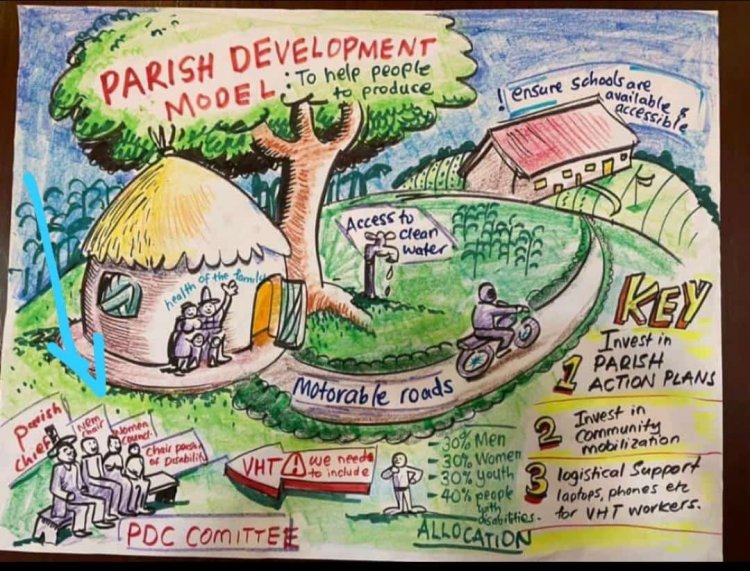 PARISH DEVELOPMENT
MODEL: To help people
to produce
! ensure schools are
available &
accessible
Access to
clean
water
health of the family
Motorable roads
KEY
1 Invest in
PARISH
ACTION PLANS
2 Invest in
Community
mobilization
3 logistical Support
laptops, phones etc
for VHT workers.
Parish
chief
NRM
chair
Women
Council
Chair parish
of Disability
PDC COMITTEE
VHT ! we need
to include
30% Men
30% Women
30% youth
40% people
with
disabilities.
ALLOCATION